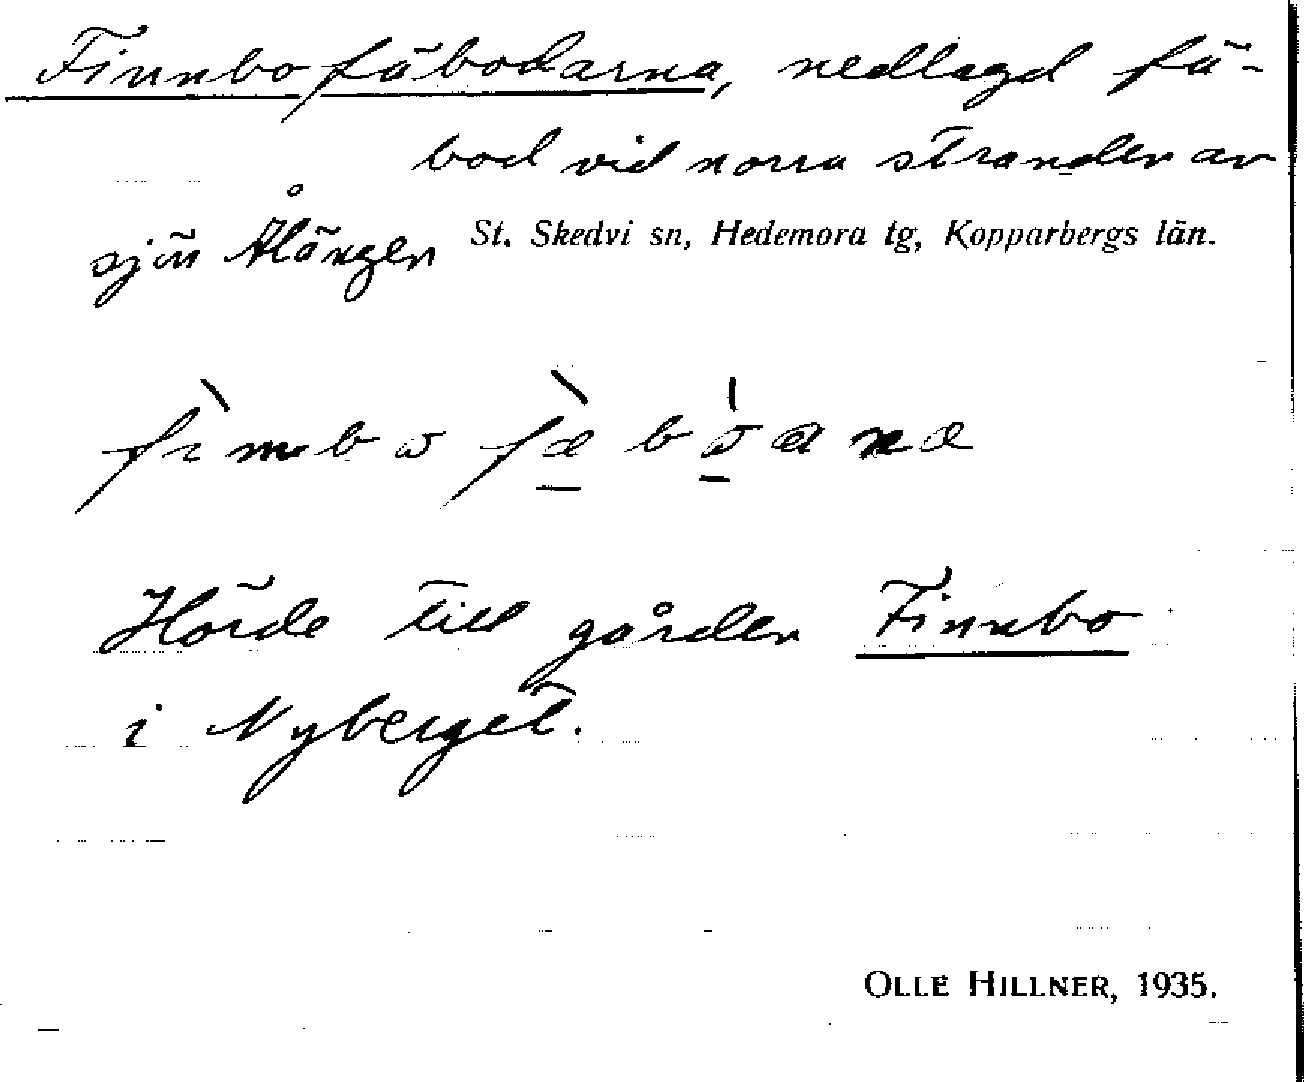 Finnbo fäbodarna, nedlagd fä-
bod vid norra stranden av
sjön Ålängen St. Skedvi sn, Hedemora tg, Kopparbergs län.
Hörde till gården Finnbo
i Nyberget.
OLLE HILLNER, 1935.